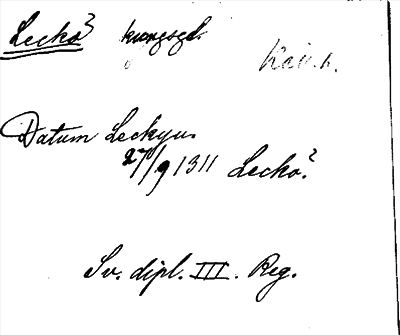 Lecko? kungsgd.
Kåll. h.
Datum Leckyu.
27/9 1311 Lecko?
Sv. dipl. III. Reg.